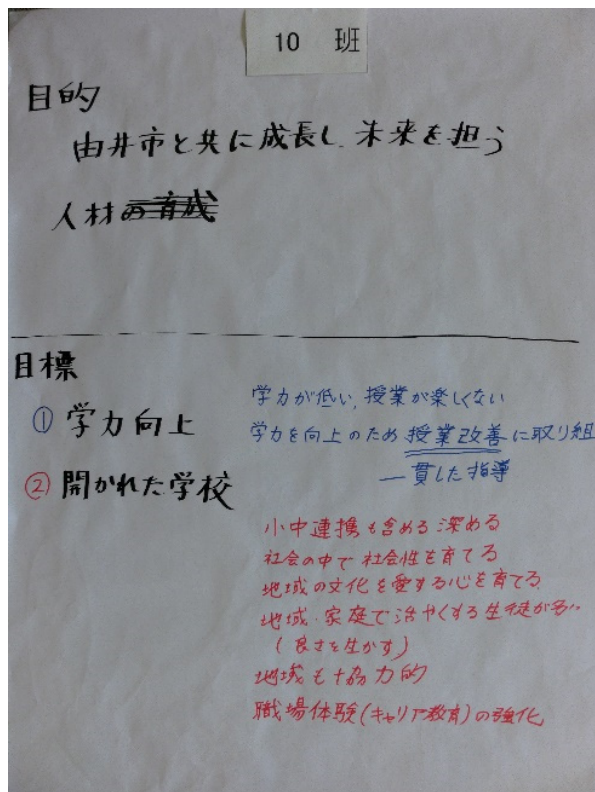 10 班
目的
由井市と共に成長し、未来を担う
人材の育成
目標
① 学力向上
学力が低い、授業が楽しくない
学力を向上のため授業改善に取り組
一貫した指導
② 開かれた学校
小中連携も含める 深める
社会の中で社会性を育てる
地域の文化を愛する心を育てる
地域・家庭で活やくする生徒が多い
(良さを生かす)
地域も協力的
職場体験(キャリア教育)の強化